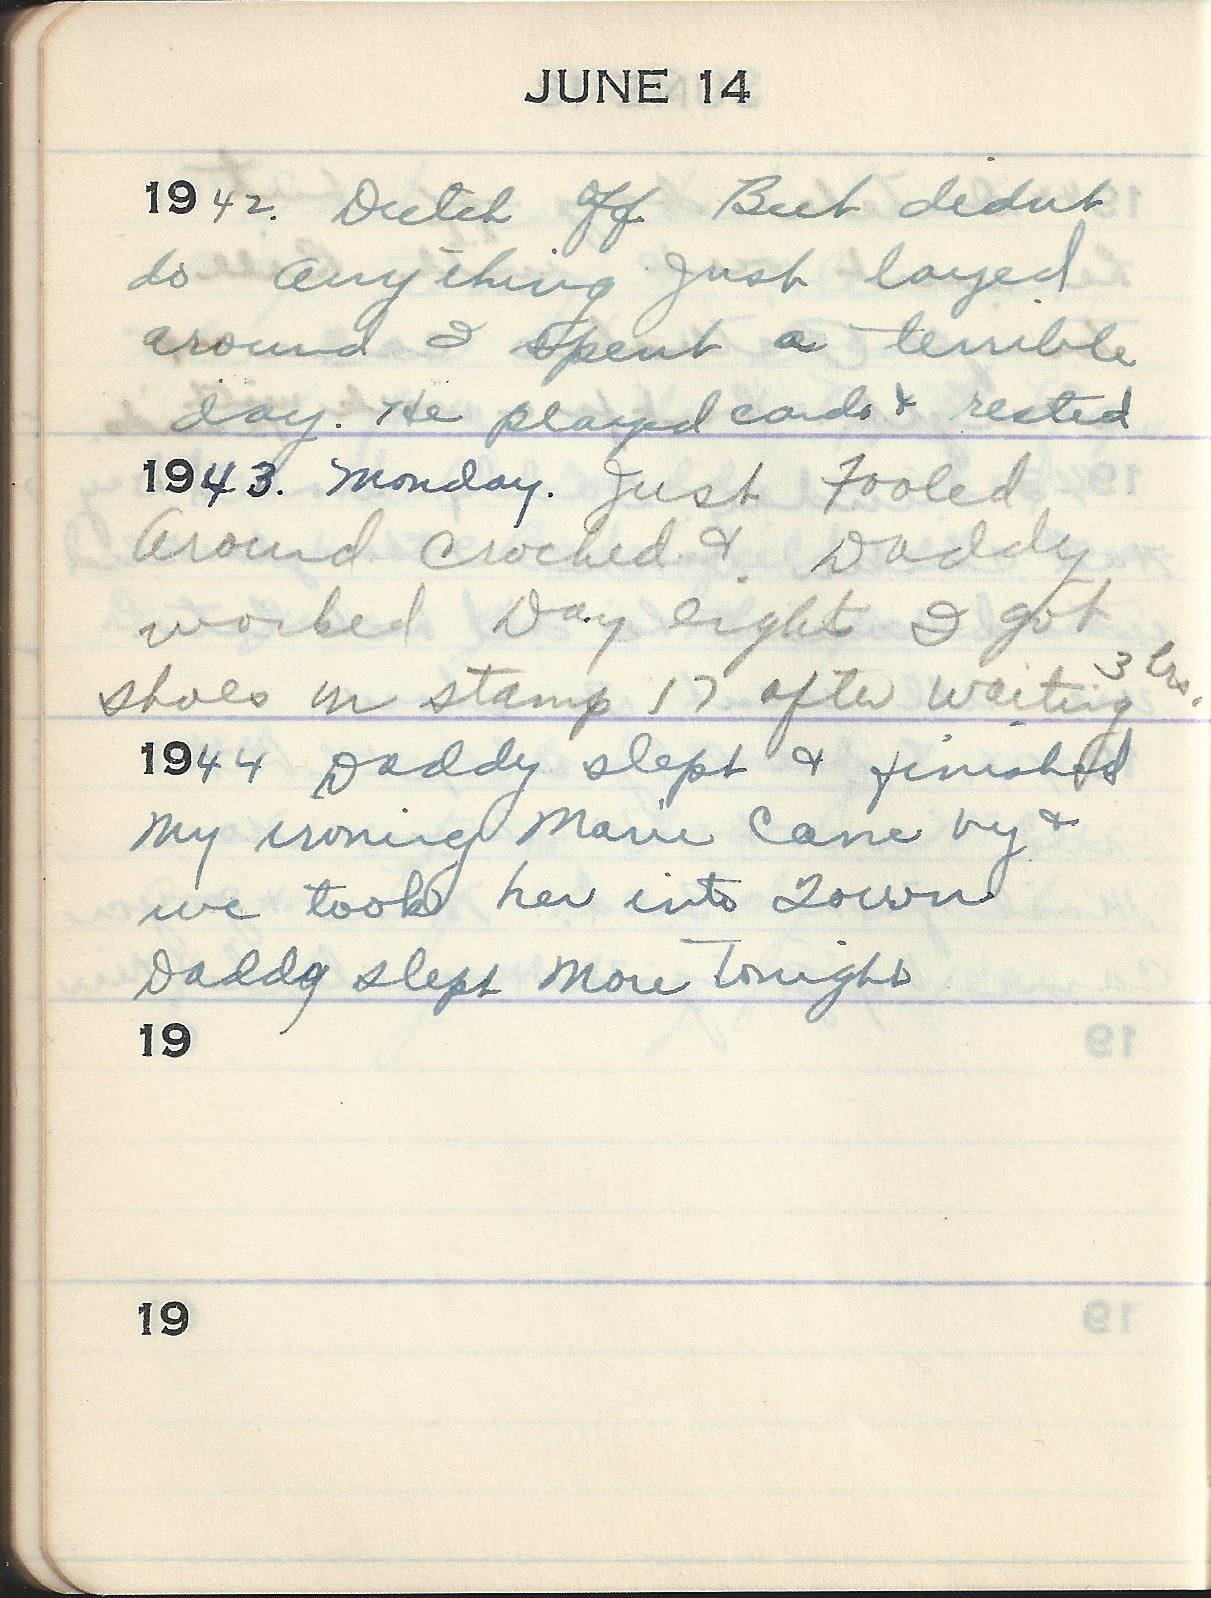 JUNE 14
1942. Dutch Off But didnt
do anything Just layed
around I spent a terrible
day. He played cards & rested
1943. Monday. Just Fooled
Around Croched & Daddy
worked Day light I got
shoes on stamp 17 after waiting 3 hrs.
1944 Daddy slept & finished
my ironing Marie Came by &
we took her into Town
Daddy slept More Tonight
19
19